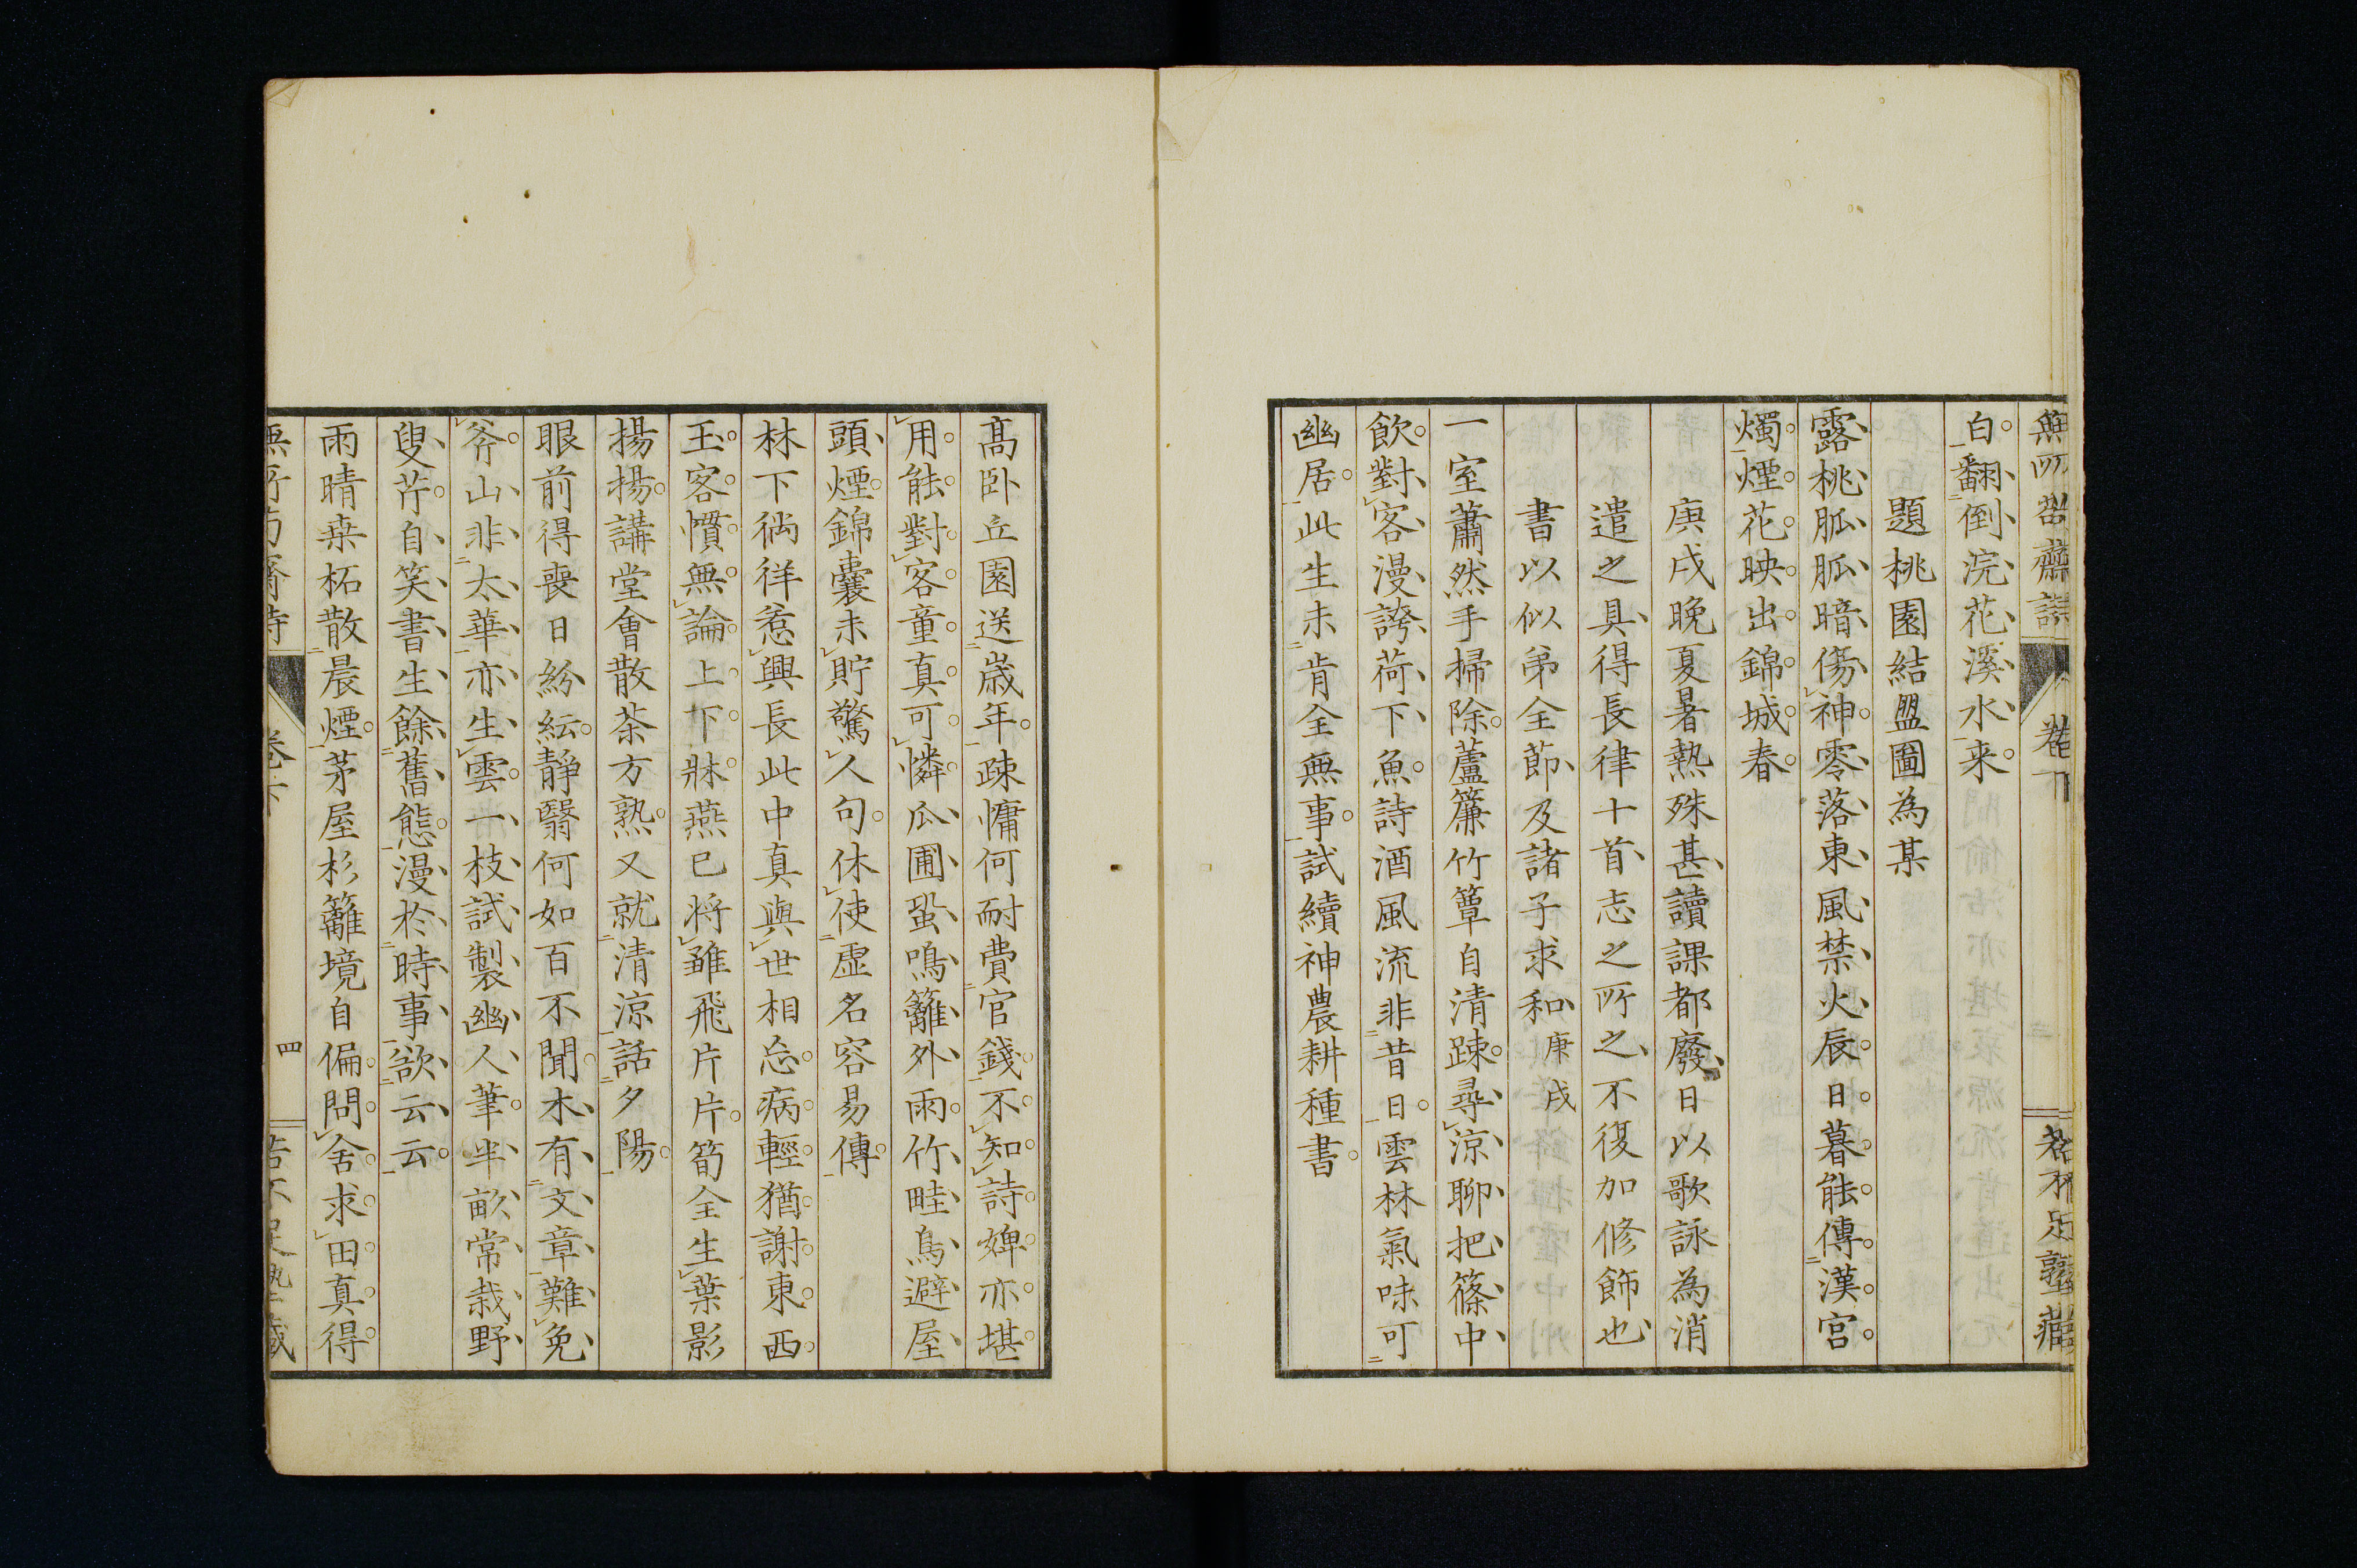 白翻倒浣花溪水来
題桃園結盟圖為某
露桃胍胍暗傷神零落東風禁火辰日暮能傳漢宮
燭煙花映出錦城春
庚戌晩夏暑熱殊甚讀課都廢日以歌詠為消
遣之具得長律十首志之所之不復加修飾也
書以似弟全莭及諸子求和庚戌
一室蕭然手掃除蘆簾竹簟自清踈尋涼聊把篠中
飲對客漫誇荷下魚詩酒風流非昔日雲林氣味可
幽居此生未肯全無事試續神農耕種書
髙卧丘園送歳年踈慵何耐費官錢不知詩婢亦堪
用能對客童真可憐瓜圃蛩鳴籬外雨竹畦鳥避屋
頭煙錦囊未貯驚人句休使虚名容易傳
林下徜徉惹興長此中真與世相忘病輕猶謝東西
玉客慣無論上下牀燕已将雖飛片片筍全生葉影
揚揚講堂會散茶方熟又就清涼話夕陽
眼前得喪日紛紜靜翳何如百不聞木有文章難免
斧山非太華亦生雲一枝試製幽人筆半畝常栽野
叟芹自笑書生餘舊態漫於時事欲云云
雨晴桒柘散晨煙茅屋杉籬境自偏問舍求田真得
四